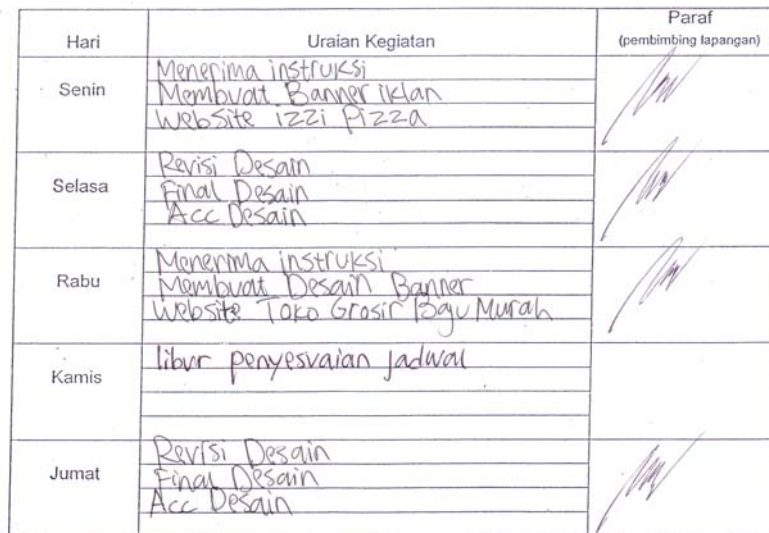 Hari Uraian Kegiatan Paraf
(pembimbing lapangan)
Senin Menerima instruksi
Membuat Banner iklan
Website izzi Pizza
Selasa Revisi Desain
Final Desain
Acc Desain
Rabu Menerima instruksi
Membuat Desain Banner
Website Toko Grosir Baju Murah
Kamis libur penyesuaian jadwal
Jumat Revisi Desain
Final Desain
Acc Desain